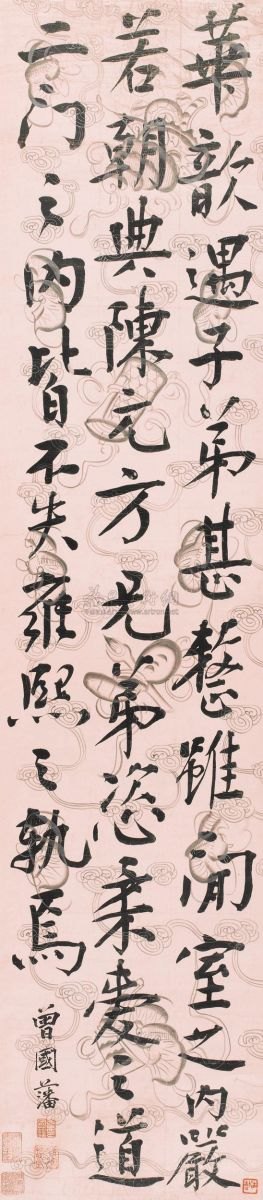 華歆遇子弟甚整雖閒室之內嚴
若朝典陳元方兄弟恣柔愛之道
二門之內皆不失雍熙之軌焉
曾國藩